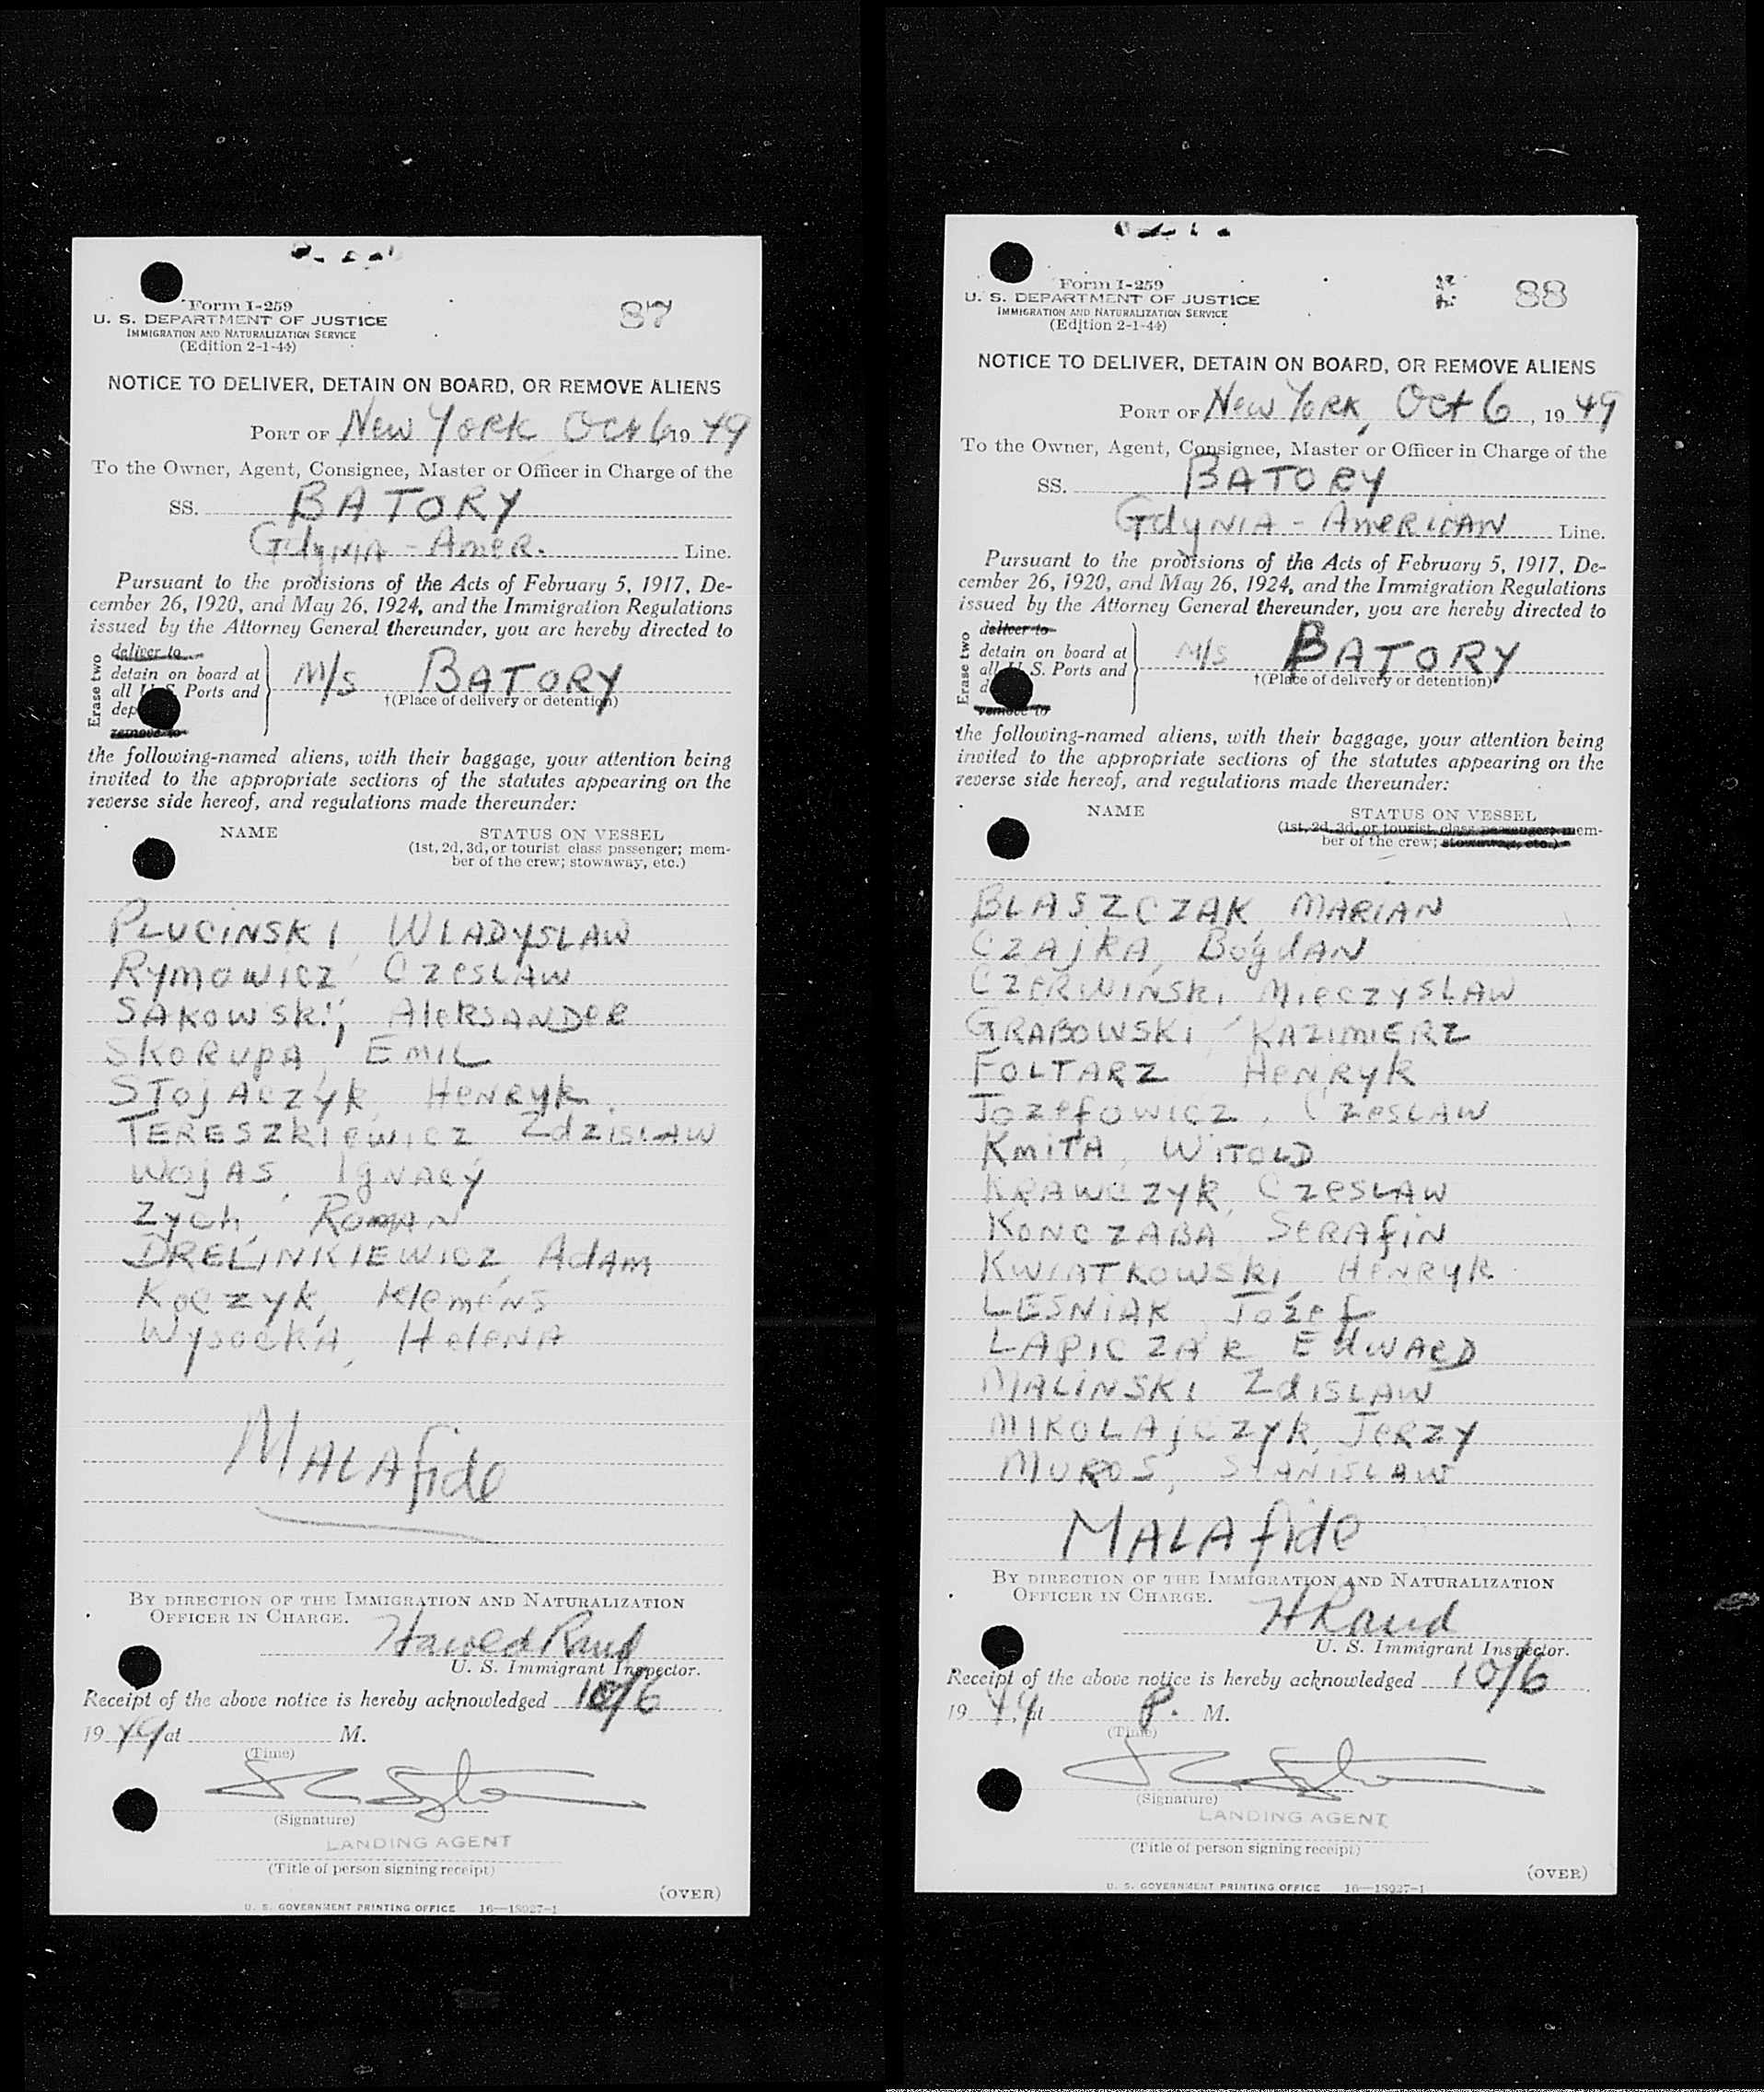 Form I-259
U. S. DEPARTMENT OF JUSTICE
IMMIGRATION AND NATURALIZATION SERVICE
(Edition 2-1-44)
87
NOTICE TO DELIVER, DETAIN ON BOARD, OR REMOVE ALIENS
PORT OF New York Oct 6 19 49
To the Owner, Agent, Consignee, Master or Officer in Charge of the
SS. BATORY
Gdynia - Amer. Line.
Pursuant to the provisions of the Acts of February 5, 1917, De-
cember 26, 1920, and May 26, 1924, and the Immigration Regulations
issued by the Attorney General thereunder, you are hereby directed to
Erase two
deliver to
detain on board at
all U. S. Ports and
dep
remove to
M/S BATORY
†(Place of delivery or detention)
the following-named aliens, with their baggage, your attention being
invited to the appropriate sections of the statutes appearing on the
reverse side hereof, and regulations made thereunder:
NAME STATUS ON VESSEL
(1st, 2d, 3d, or tourist class passenger; mem-
ber of the crew; stowaway, etc.)
PLUCINSKI WLADYSLAW
RYMOWICZ CZESLAW
SAKOWSKI, ALEKSANDER
SKORUPA EMIL
STOJACZYK, HENRYK
TERESZKIEWICZ ZDZISLAW
WOJAS, IGNACY
ZYCH, ROMAN
DRELINKIEWICZ, ADAM
KOCZYK, KLEMENS
WYSOCKA, HELENA
MALAfide
BY DIRECTION OF THE IMMIGRATION AND NATURALIZATION
OFFICER IN CHARGE.
Harold Rand
U. S. Immigrant Inspector.
Receipt of the above notice is hereby acknowledged 10/6
19 49 at M.
(Time)
(Signature)
LANDING AGENT
(Title of person signing receipt)
(OVER)
U. S. GOVERNMENT PRINTING OFFICE 16—18027-1
Form I-259
U. S. DEPARTMENT OF JUSTICE
IMMIGRATION AND NATURALIZATION SERVICE
(Edition 2-1-44)
88
NOTICE TO DELIVER, DETAIN ON BOARD, OR REMOVE ALIENS
PORT OF New York, Oct 6, 19 49
To the Owner, Agent, Consignee, Master or Officer in Charge of the
SS. BATORY
Gdynia - American Line.
Pursuant to the provisions of the Acts of February 5, 1917, De-
cember 26, 1920, and May 26, 1924, and the Immigration Regulations
issued by the Attorney General thereunder, you are hereby directed to
Erase two
deliver to
detain on board at
all U. S. Ports and
d
remove to
M/S BATORY
†(Place of delivery or detention)
the following-named aliens, with their baggage, your attention being
invited to the appropriate sections of the statutes appearing on the
reverse side hereof, and regulations made thereunder:
NAME STATUS ON VESSEL
(1st, 2d, 3d, or tourist class passenger; mem-
ber of the crew; stowaway, etc.)
BLASZCZAK MARIAN
CZAJKA, BOGDAN
CZERWINSKI MIECZYSLAW
GRABOWSKI, KAZIMIERZ
FOLTARZ HENRYK
JOZEFOWICZ, CZESLAW
KMITA, WITOLD
KRAWCZYK, CZESLAW
KONCZABA SERAFIN
KWIATKOWSKI HENRYK
LESNIAK, JOZEF
LAPICZAK EDWARD
MALINSKI ZDISLAW
MIKOLAJCZYK, JERZY
MUROS, STANISLAW
MALAfide
BY DIRECTION OF THE IMMIGRATION AND NATURALIZATION
OFFICER IN CHARGE.
H Rand
U. S. Immigrant Inspector.
Receipt of the above notice is hereby acknowledged 10/6
19 49 at P. M.
(Time)
(Signature)
LANDING AGENT
(Title of person signing receipt)
(OVER)
U. S. GOVERNMENT PRINTING OFFICE 16—18027-1